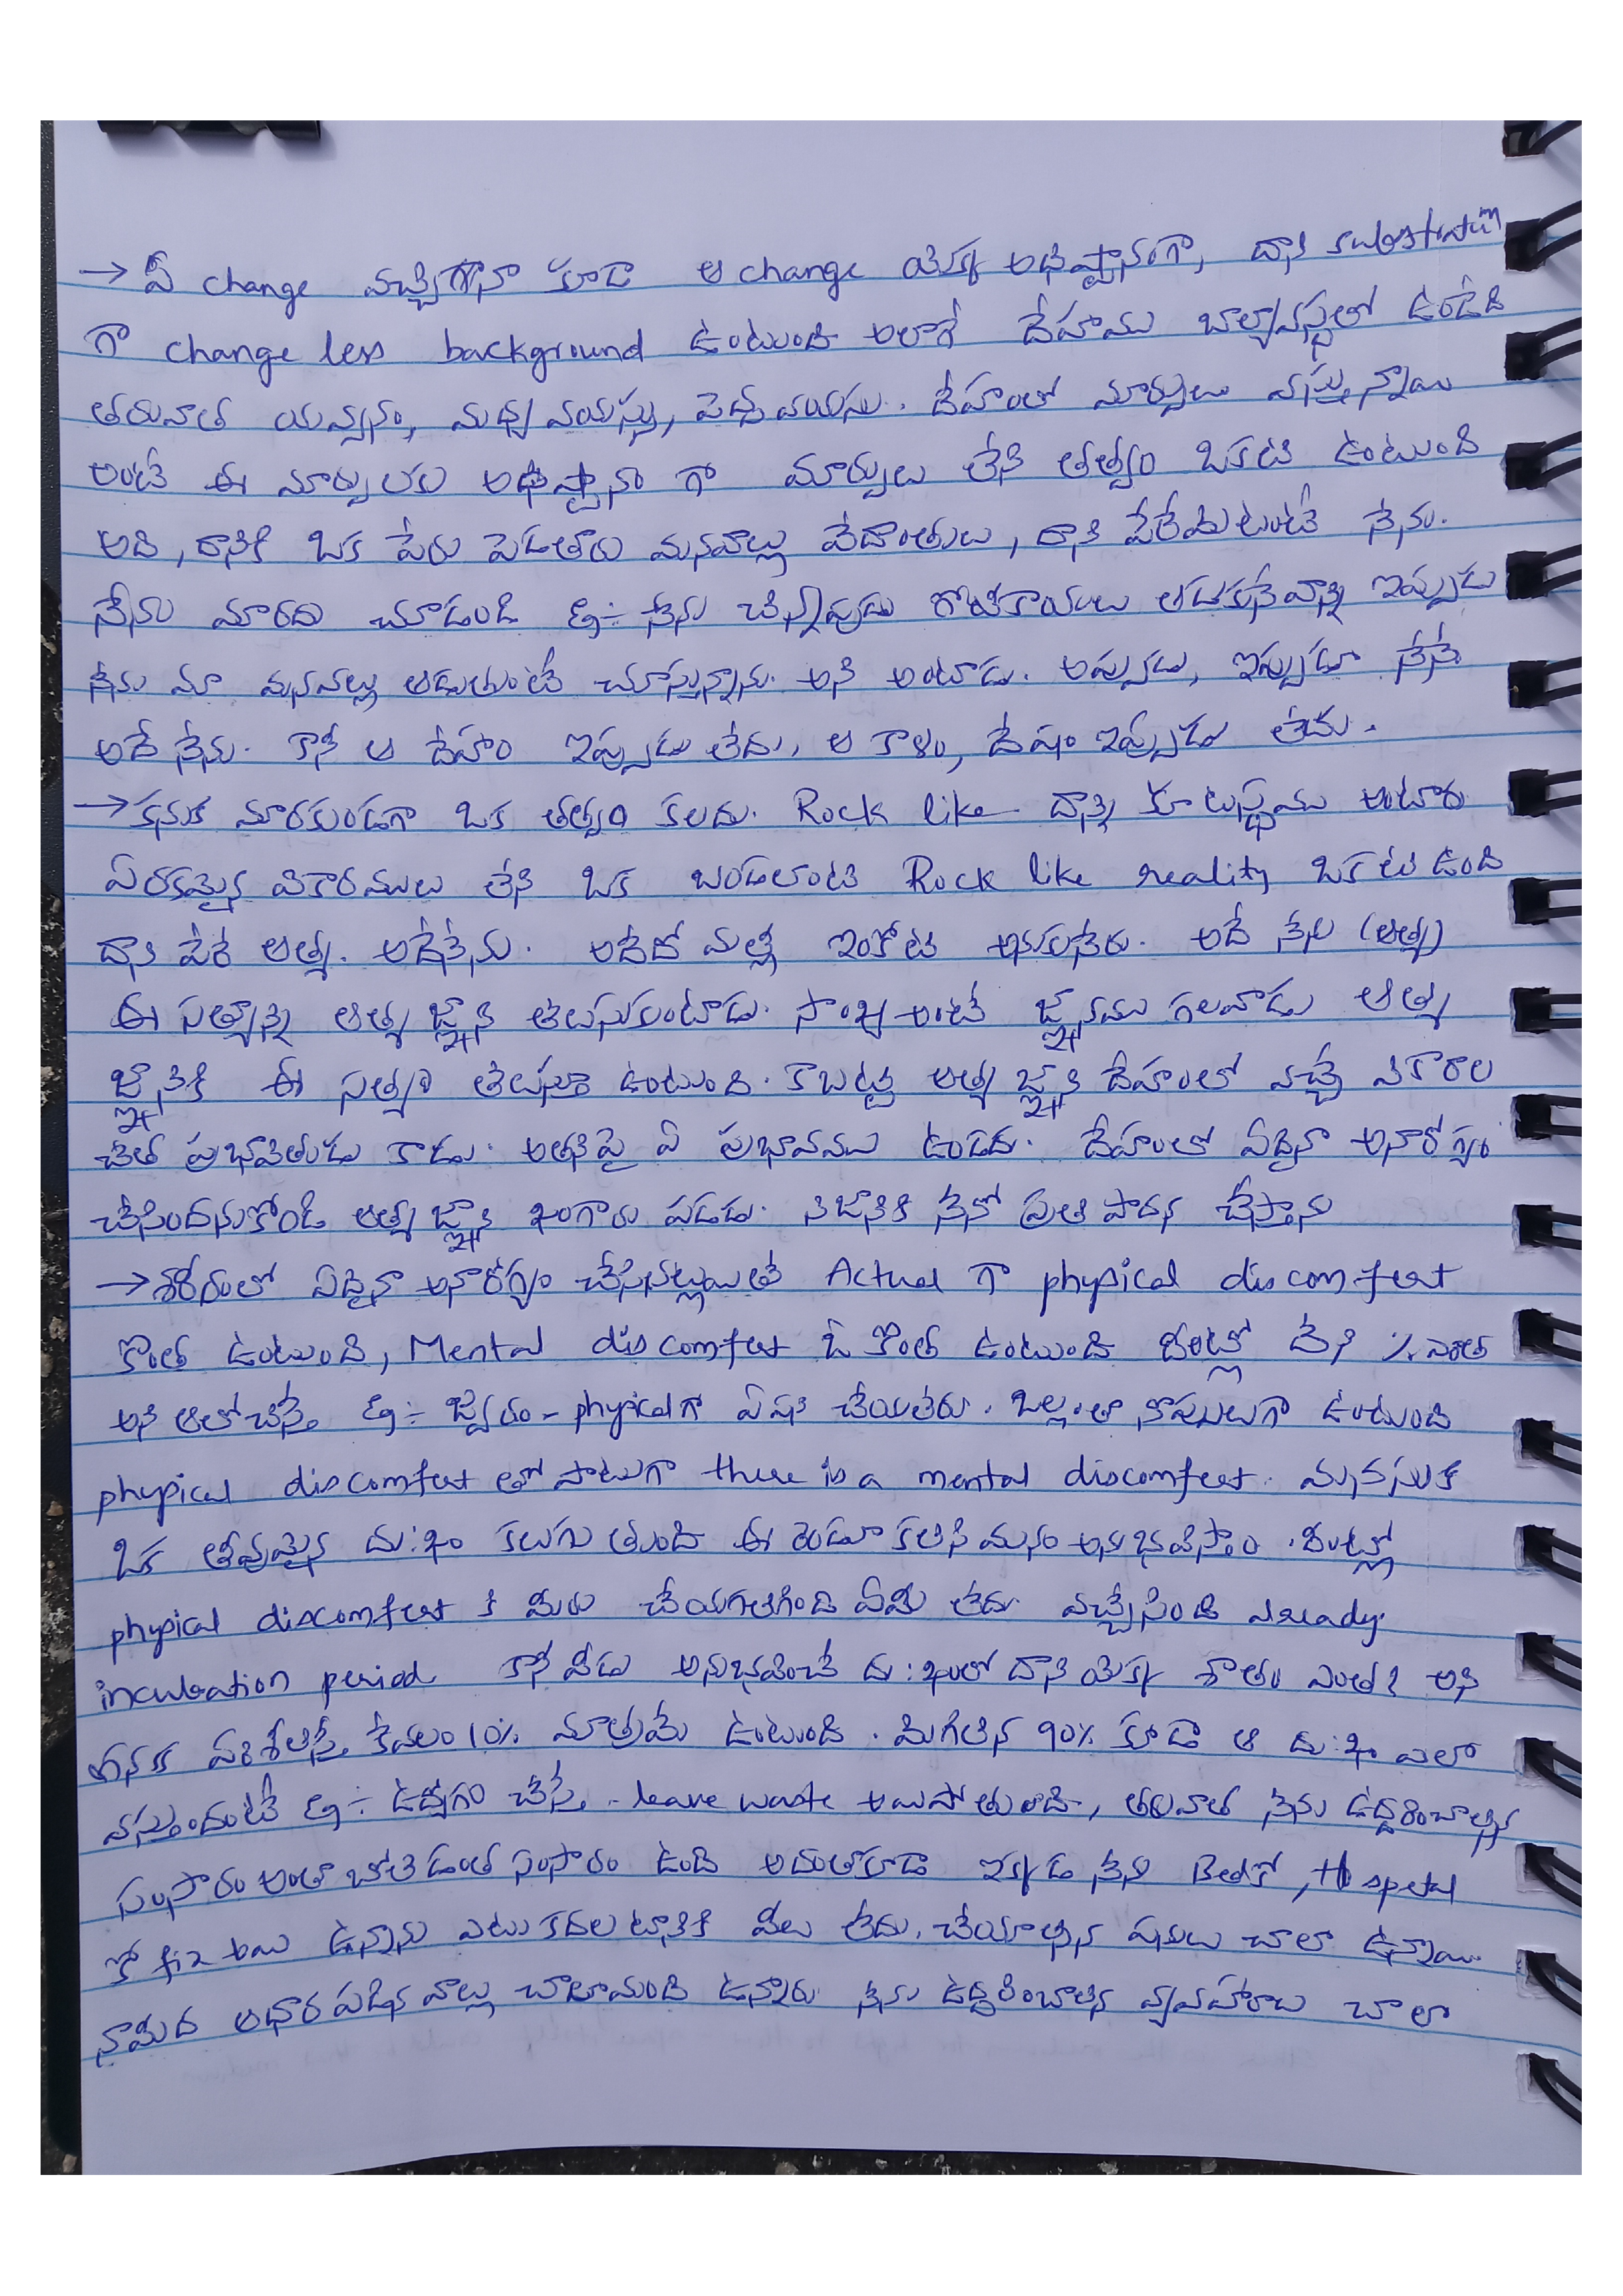 → ఏ change వచ్చిగానా కూడా ఆ change యొక్క అధిష్టానంగా, దాని substratum
గా change less background ఉంటుంది అలాగే దేహము బాల్యావస్థలో ఉండేది
తరువాత యవ్వనం, మధ్య వయస్సు, పెద్ద వయసు. దేహంలో మార్పులు వస్తున్నాయి
అంటే ఈ మార్పులకు అధిష్టానం గా మార్పులు లేని తత్వం ఒకటి ఉంటుంది
అది, దానికి ఒక పేరు పెడతారు మనవాళ్లు వేదాంతులు, దాని పేరేమిటంటే నేను.
నేను మారదు చూడండి Eg:- నేను చిన్నప్పుడు గోటికాయలు ఆడుకునేవాణ్ణి ఇప్పుడు
నేను మా మనవళ్లు ఆడుతుంటే చూస్తున్నాను. అని అంటాడు. అప్పుడు, ఇప్పుడూ నేనే
అదే నేను. కానీ ఆ దేహం ఇప్పుడు లేదు, ఆ కాళం, దేషం ఇప్పుడు లేదు.
→ కనుక మారకుండగా ఒక తత్వం కలదు. Rock like దాన్ని కూటస్థము అంటారు
ఏరకమైన వికారములు లేని ఒక బండలాంటి Rock like reality ఒకటి ఉంది
దాని పేరే ఆత్మ. అదేనేను. అదేదో మళ్లీ ఇంకోటి అనుకునేరు. అదే నేను (ఆత్మ)
ఈ సత్యాన్ని ఆత్మ జ్ఞాని తెలుసుకుంటాడు. సాంఖ్య అంటే జ్ఞానము గలవాడు ఆత్మ
జ్ఞానికి ఈ సత్యం తెలుస్తూ ఉంటుంది. కాబట్టి ఆత్మ జ్ఞాని దేహంలో వచ్చే వికారాల
చేత ప్రభావితుడు కాడు. అతనిపై ఏ ప్రభావము ఉండదు. దేహంలో ఏదైనా అనారోగ్యం
చేసిందనుకోండి ఆత్మ జ్ఞాని ఖంగారు పడడు. నిజానికి నేనో ప్రతి పాదన చేస్తాను
→ శరీరంలో ఏదైనా అనారోగ్యం చేసినట్లయితే Actual గా physical discomfert
కొంత ఉంటుంది, Mental discomfert ఓ కొంత ఉంటుంది వీంట్లో దేని % ఎంత
అని ఆలోచిస్తే Eg:- జ్వరం - physical గా ఏపని చేయలేరు. ఒల్లంతా నొప్పులుగా ఉంటుంది
physical discomfert తో పాటుగా there is a mental discomfert. మనసుకి
ఒక తీవ్రమైన దు:ఖం కలుగు తుంది ఈ రెండూ కలిసి మనం అనుభవిస్తాం. వీంట్లో
physical discomfert కి మీరు చేయగలిగింది ఏమీ లేదు. వచ్చేసింది already.
incubation period కానీ వీడు అనుభవించే దు:ఖంలో దాని యొక్క శాతం ఎంత? అని
కనక పరిశీలిస్తే కేవలం 10% మాత్రమే ఉంటుంది. మిగిలిన 90% కూడా ఆ దు:ఖం ఎలా
వస్తుందంటే Eg:- ఉద్యోగం చేస్తే - leave waste అయిపోతుంది, తరువాత నేను ఉద్ధరించాల్సిన
సంసారం అంతా బోలెడంత సంసారం ఉంది అదంతాకూడా ఇక్కడ నేను Bedకో, Hospetal
కో fix అయి ఉన్నాను ఎటు కదల టానికి వీలు లేదు. చేయాల్సిన పనులు చాలా ఉన్నాయి.
నామీద ఆధార పడిన వాల్లు చాలామంది ఉన్నారు నేను ఉద్ధరించాలిన వ్యవహారాలు చాలా